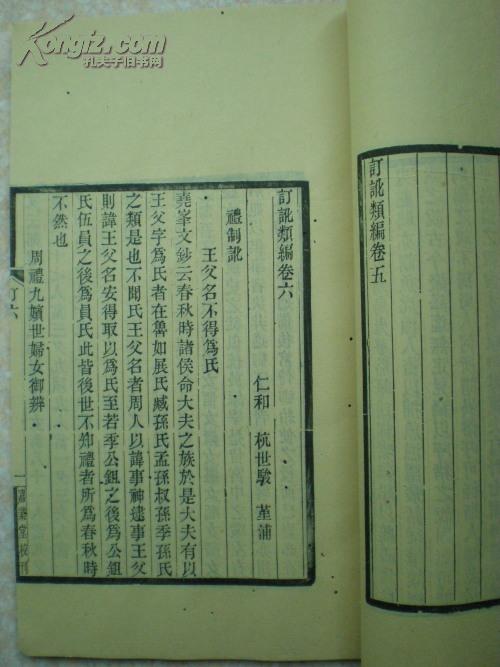 Kongfz.com
孔夫子旧书网
訂訛類編卷五
訂訛類編卷六
仁和 杭世駿 堇浦
禮制訛
王父名不得爲氏
堯峯文鈔云春秋時諸侯命大夫之族於是大夫有以
王父字爲氏者在魯如展氏臧孫氏孟孫叔孫季孫氏
之類是也不聞氏王父名者周人以諱事神逮事王父
則諱王父名安得取以爲氏至若季公鉏之後爲公鉏
氏伍員之後爲員氏此皆後世不知禮者所爲春秋時
不然也
周禮九嬪世婦女御辨
訂六
一
嘉業堂校刊